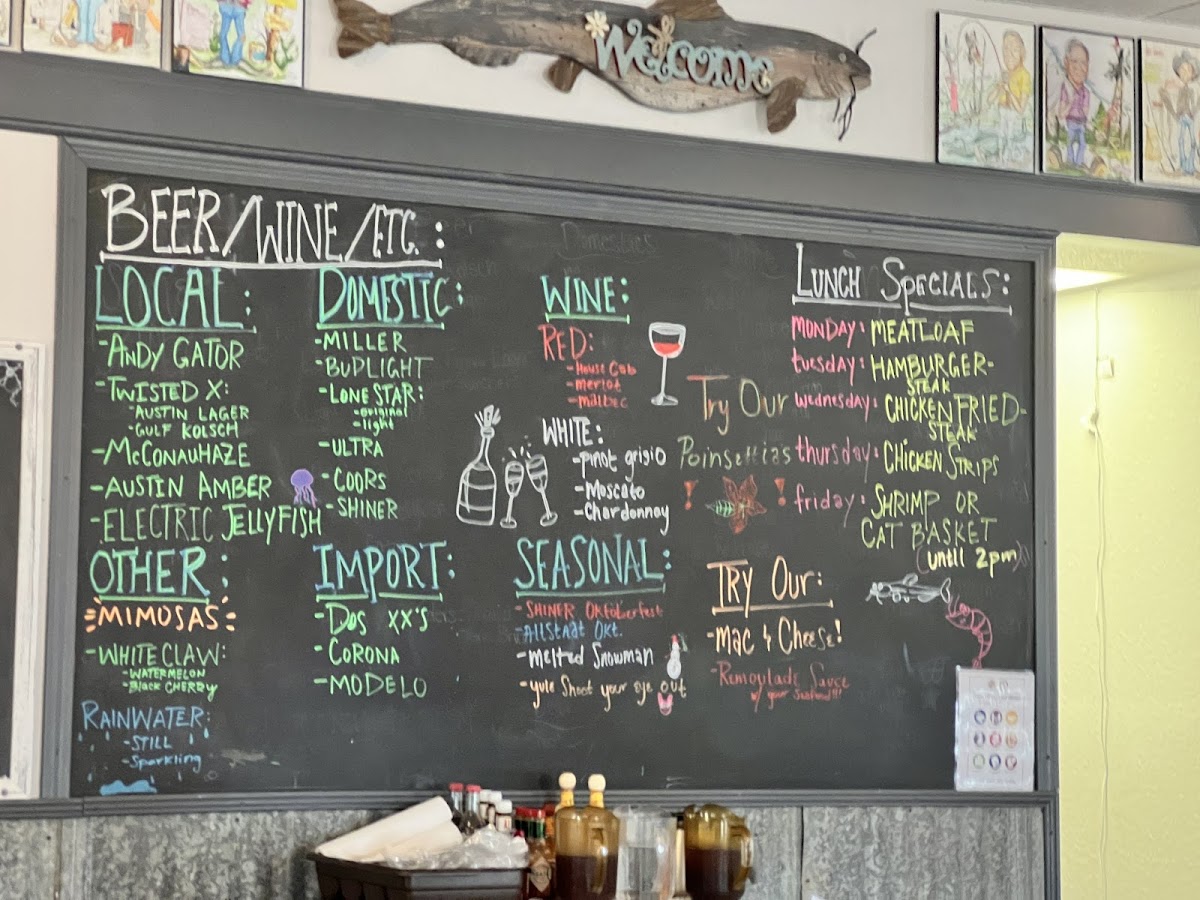 Welcome
BEER/WINE/ETC.:
LOCAL:
-ANDY GATOR
-TWISTED X:
-AUSTIN LAGER
-GULF KOLSCH
-McCONAUHAZE
-AUSTIN AMBER
-ELECTRIC JELLYFISH
OTHER:
MIMOSAS
-WHITE CLAW:
-WATERMELON
-BLACK CHERRY
RAINWATER:
-STILL
-Sparkling
DOMESTIC:
-MILLER
-BUDLIGHT
-LONE STAR:
-original
-light
-ULTRA
-COORS
-SHINER
IMPORT:
-DOS XX'S
-CORONA
-MODELO
WINE:
RED:
-House Cab
-merlot
-malbec
WHITE:
-pinot grigio
-Moscato
-Chardonnay
SEASONAL:
-SHINER Oktoberfest
-Allstadt Okt.
-melted Snowman
-yule Shoot your eye out
Try Our
Poinsettias
! !
TRY Our:
-mac & Cheese!
-Remoylade Sauce
w/ your Seafood!!!
LUNCH SPECIALS:
MONDAY: MEATLOAF
tuesday: HAMBURGER-
STEAK
wednesday: CHICKEN FRIED-
STEAK
thursday: CHICKEN STRIPS
friday: SHRIMP OR
CAT BASKET
(until 2pm)